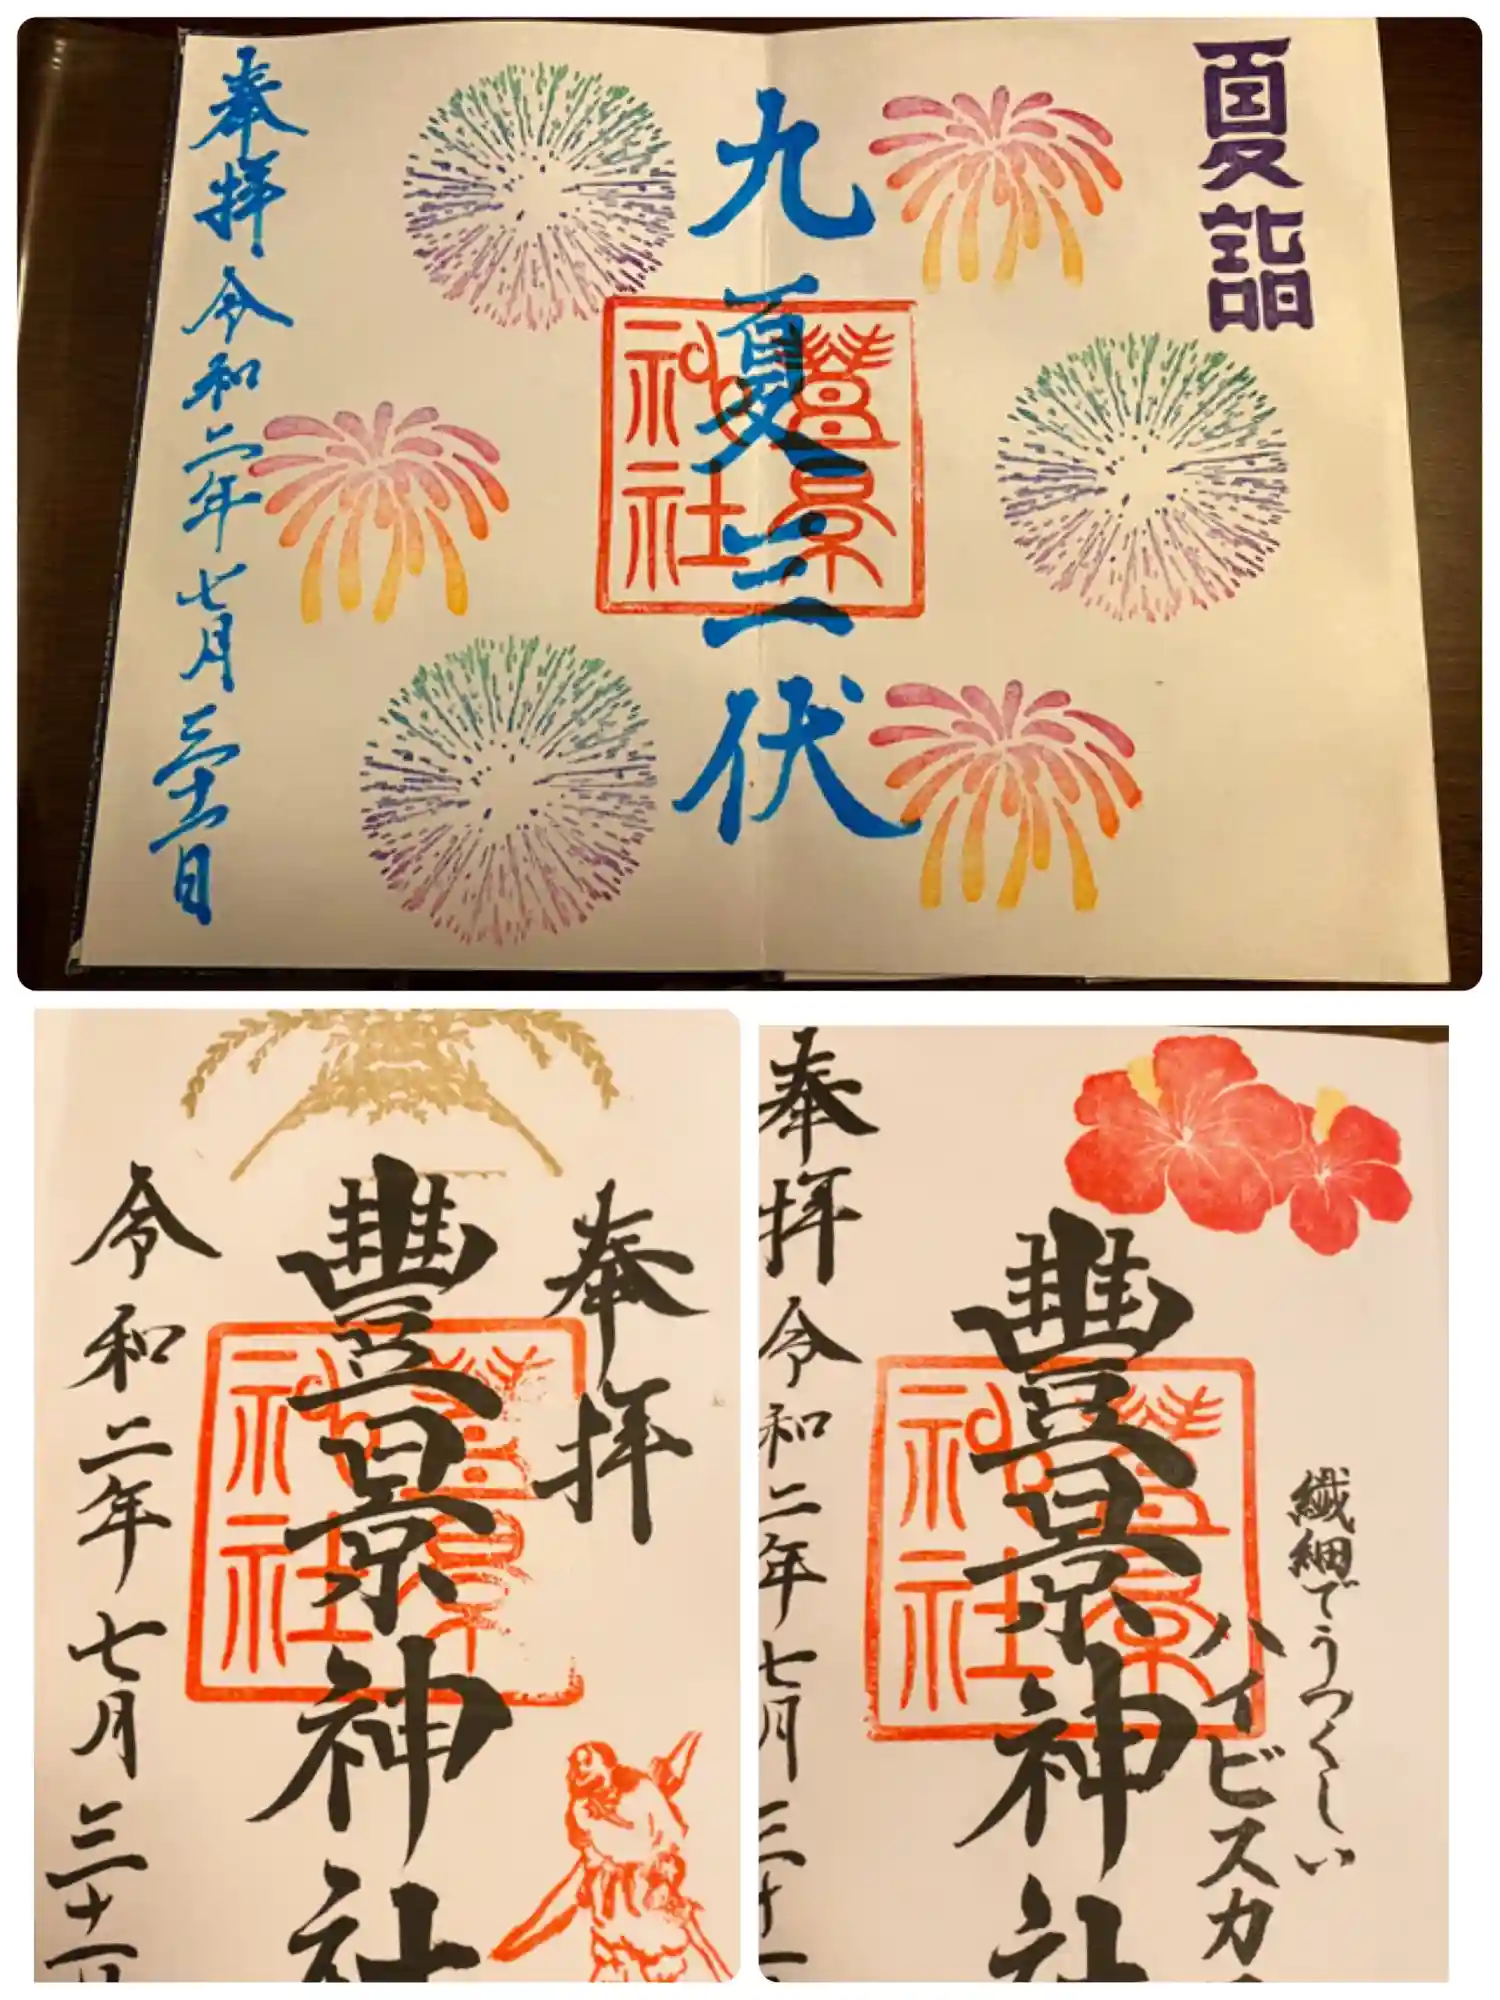 夏詣
九夏三伏
豊景神社
奉拝 令和二年 七月 三十一日
奉拝
豊景神社
豊景神社
令和二年 七月 三十一日
繊細でうつくしい
ハイビスカス
豊景神社
豊景神社
奉拝 令和二年 七月 三十一